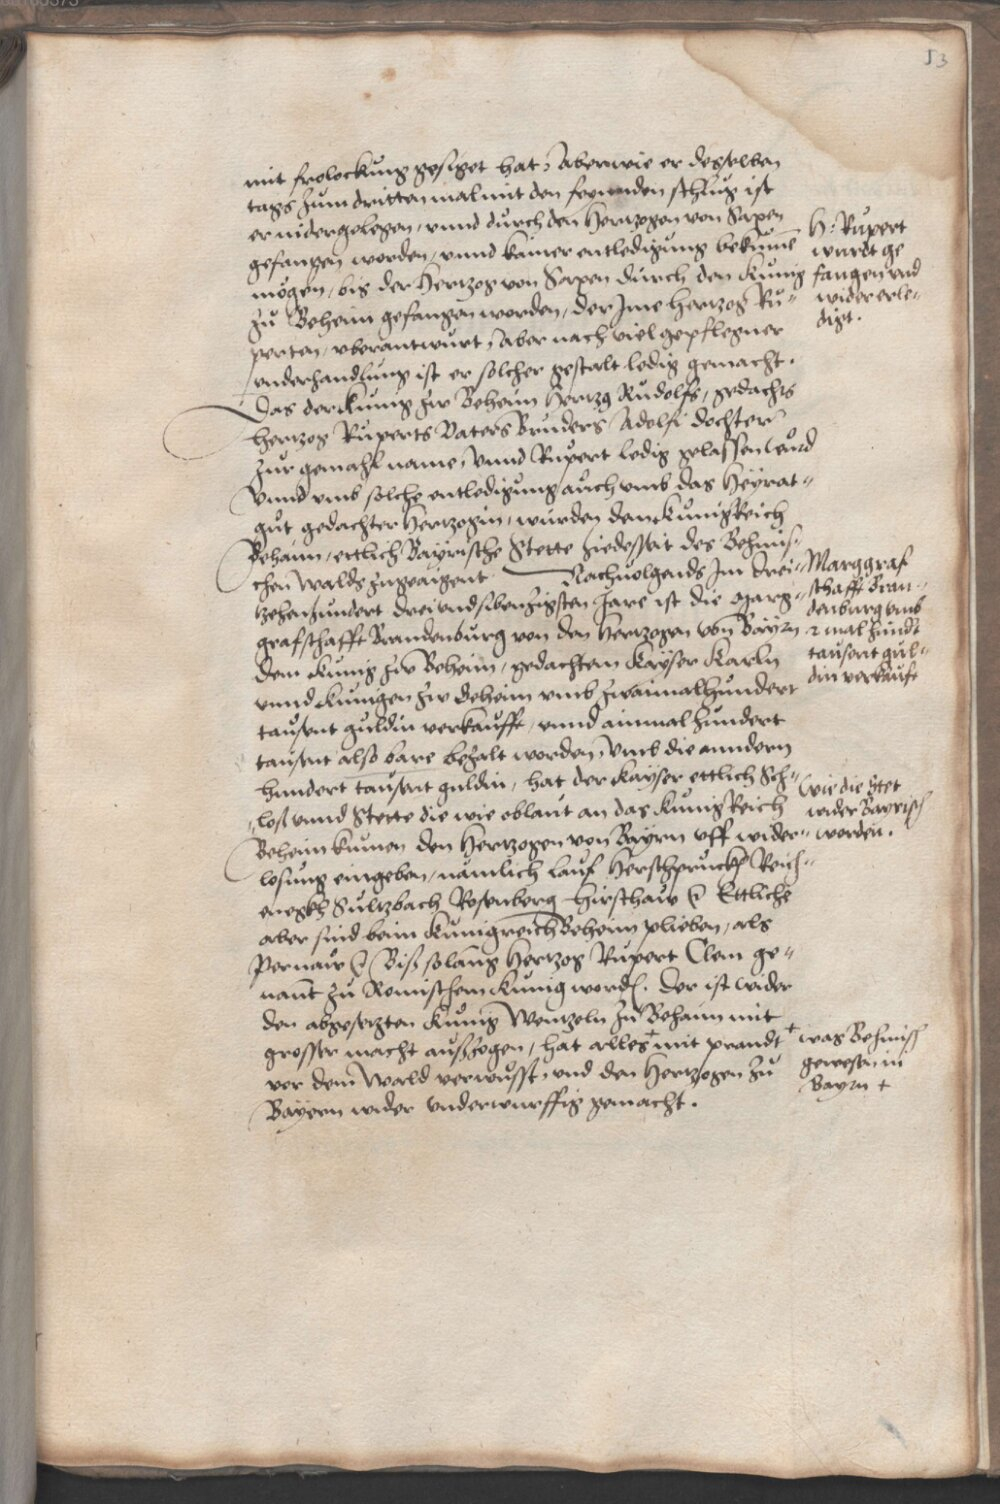 53
mit frolockung gesiget hat, Aber wie er desselben
tags zum dritten mal mit den feinnden schlug ist
er nidergelegen, vnnd durch den Hertzogen von Saxen
gefangen worden, vnnd kainer entledigung bekumē
mögen, bis der Hertzog von Saxen durch den Kunig
zu Beheim gefangen worden, der Jme hertzog Ru-
perten, vberantwurt, Aber nach viel gepflegner
vnderhandlung ist er solcher gestalt ledig gemacht.
Das der Kunig zw Beheim Hertzg Rudolfs, gedachts
hertzog Ruperts Vaters Bruders Adolfi dochter
zur gemahl name, Vnnd Rupert ledig gelassen wurd
Vnnd vmb solche entledigung auch vmb das Heyrat-
gut gedachter Hertzogin, wurden dem Kunig Reich
Behaim, ettlich Bayrische Stette hiedesseit des Behmis-
chen Walds zugeaigent Nachuolgends Jm drei-
tzehenhundert drei vnd sibenzigsten Jare ist die Marg-
grafschafft Brandenburg von den Hertzogen von Bayrn
dem Kunig zw Beheim, gedachtem Kayser Karln
vnnd Kunigen zw Beheim vmb zwaimalhundert
tausent guldin verkaufft, vnnd ainmal hundert
tausent also bare bezalt worden, Vmb die anndern
hundert tausent guldin, hat der Kayser ettlich Sch-
loß vnnd Stette die wie oblaut an das Kunig Reich
Beheim kumen den Hertzogen von Bayrn vff wider-
losung eingeben, nämlich Lauf Herschpruckh Reich-
enegkh Sultzbach Rosenberg Hirschaw &c Ettliche
aber sind beim Kunigreich Beheim plieben, als
Pernaw &c Biß solang Hertzog Rupert Clem ge-
nant zu Romischem Kunig word. Der ist wider
den abgesetzten Kunig Wentzeln zu Behaim mit
grosser macht außzogen, hat alles + mit prandt
vor dem Wald verwusst, vnd den Hertzogen zu
Bayern wider vnderwurffig gemacht.
H: Rupert
wurdt ge
fangen vnd
wider erle-
digt.
Marggraf
schafft Bran-
denburg vmb
2 mal hundt
tausent gul-
din verkauft
Wie die Stet
wider Bayrisch
worden.
+ was Behmisch
gewesen in
Bayrn +